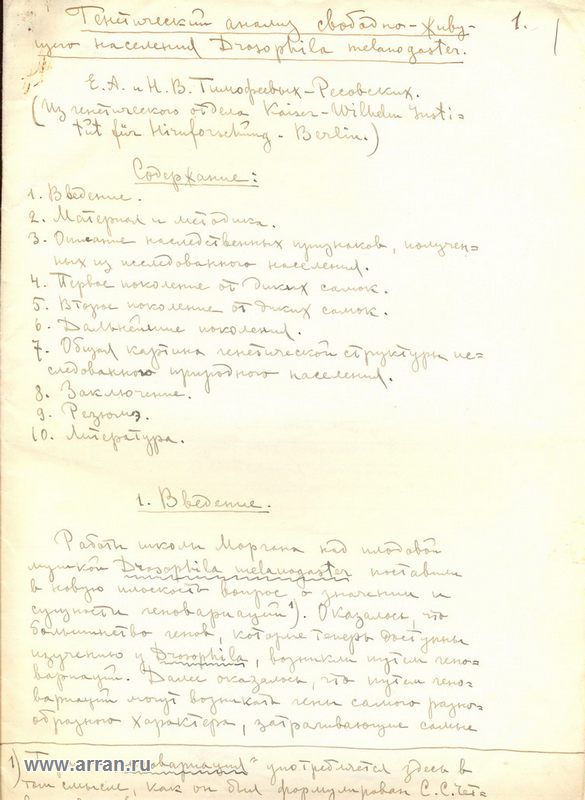 Генетический анализ свободно-живу-
щего населения Drosophila melanogaster.
1.
Е.А. и Н.В. Тимофеевых-Ресовских.
(Из генетического отдела Kaiser-Wilhelm Insti=
tüt für Hirnforschüng - Berlin.)
Содержание:
1. Введение.
2. Материал и методика.
3. Описание наследственных признаков, получен=
ных из исследованного населения.
4. Первое поколение от диких самок.
5. Второе поколение от диких самок.
6. Дальнейшие поколения.
7. Общая картина генетической структуры ис=
следованного природного населения.
8. Заключение.
9. Резюмэ.
10. Литература.
1. Введение.
Работы школы Моргана над плодовой
мушкой Drosophila melanogaster поставили
в новую плоскость вопрос о значении и
сущности геновариаций¹). Оказалось, что
большинство генов, которые теперь доступны
изучению у Drosophila, возникли путем гено=
вариаций. Далее оказалось, что путем гено=
вариаций могут возникать гены самого разно=
образного характера, затрагивающие самые
1) геновариация" употребляется здесь в
том смысле, как он был формулирован С.С. Чет=
www.arran.ru